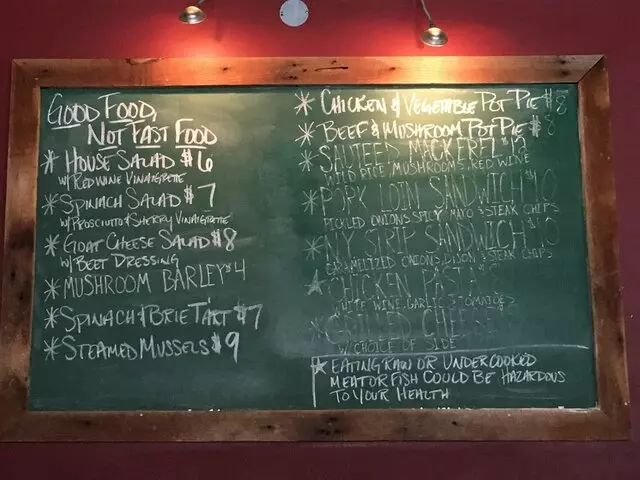 GOOD FOOD,
NOT FAST FOOD
* HOUSE SALAD $6
W/ RED WINE VINAIGRETTE
* SPINACH SALAD $7
W/ PROSCIUTTO & SHERRY VINAIGRETTE
* GOAT CHEESE SALAD $8
W/ BEET DRESSING
* MUSHROOM BARLEY $4
* SPINACH & BRIE TART $7
* STEAMED MUSSELS $9
* CHICKEN & VEGETABLE POT PIE $8
* BEEF & MUSHROOM POT PIE $8
* SAUTEED MACKEREL $12
WILD RICE, MUSHROOMS, RED WINE
* PORK LOIN SANDWICH $10
PICKLED ONIONS, SPICY MAYO & STEAK CHIPS
* NY STRIP SANDWICH $10
CARAMELIZED ONIONS, DIJON & STEAK CHIPS
* CHICKEN PASTA
WHITE WINE, GARLIC & TOMATOES
* GRILLED CHEESE
W/ CHOICE OF SIDE
* EATING RAW OR UNDERCOOKED
MEAT OR FISH COULD BE HAZARDOUS
TO YOUR HEALTH